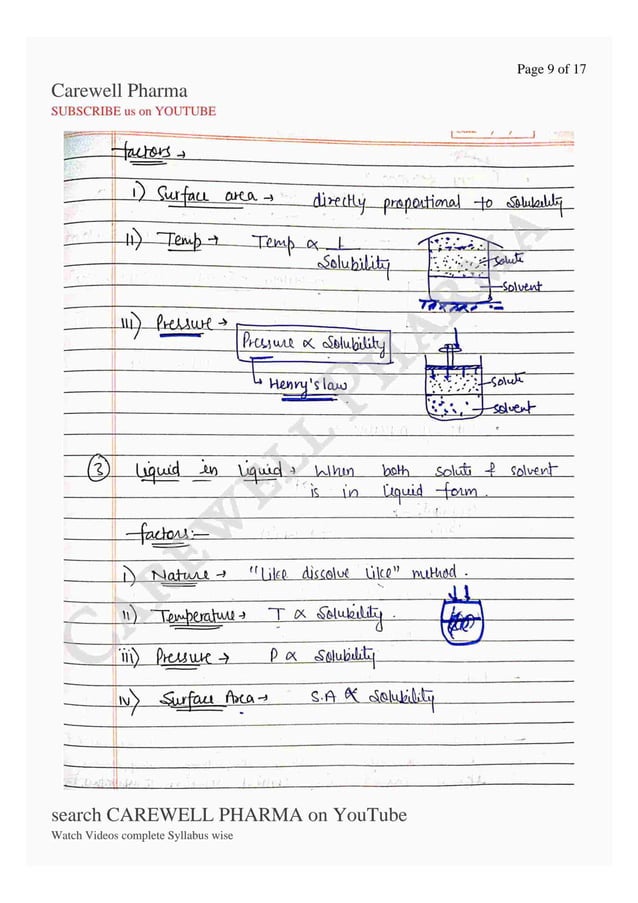 Page 9 of 17
Carewell Pharma
SUBSCRIBE us on YOUTUBE
factors →
i) Surface area → directly proportional to Solubility
II) Temp → Temp ∝ 1
Solubility
solute
solvent
III) Pressure →
Pressure ∝ Solubility
Henry's law
solute
solvent
③ Liquid in liquid → When both solute & solvent
is in liquid form.
factors:-
i) Nature → "Like dissolve like" method.
ii) Temperature → T ∝ Solubility.
iii) Pressure → P ∝ Solubility
iv) Surface Area → S.A ∝ Solubility
CAREWELL PHARMA
search CAREWELL PHARMA on YouTube
Watch Videos complete Syllabus wise